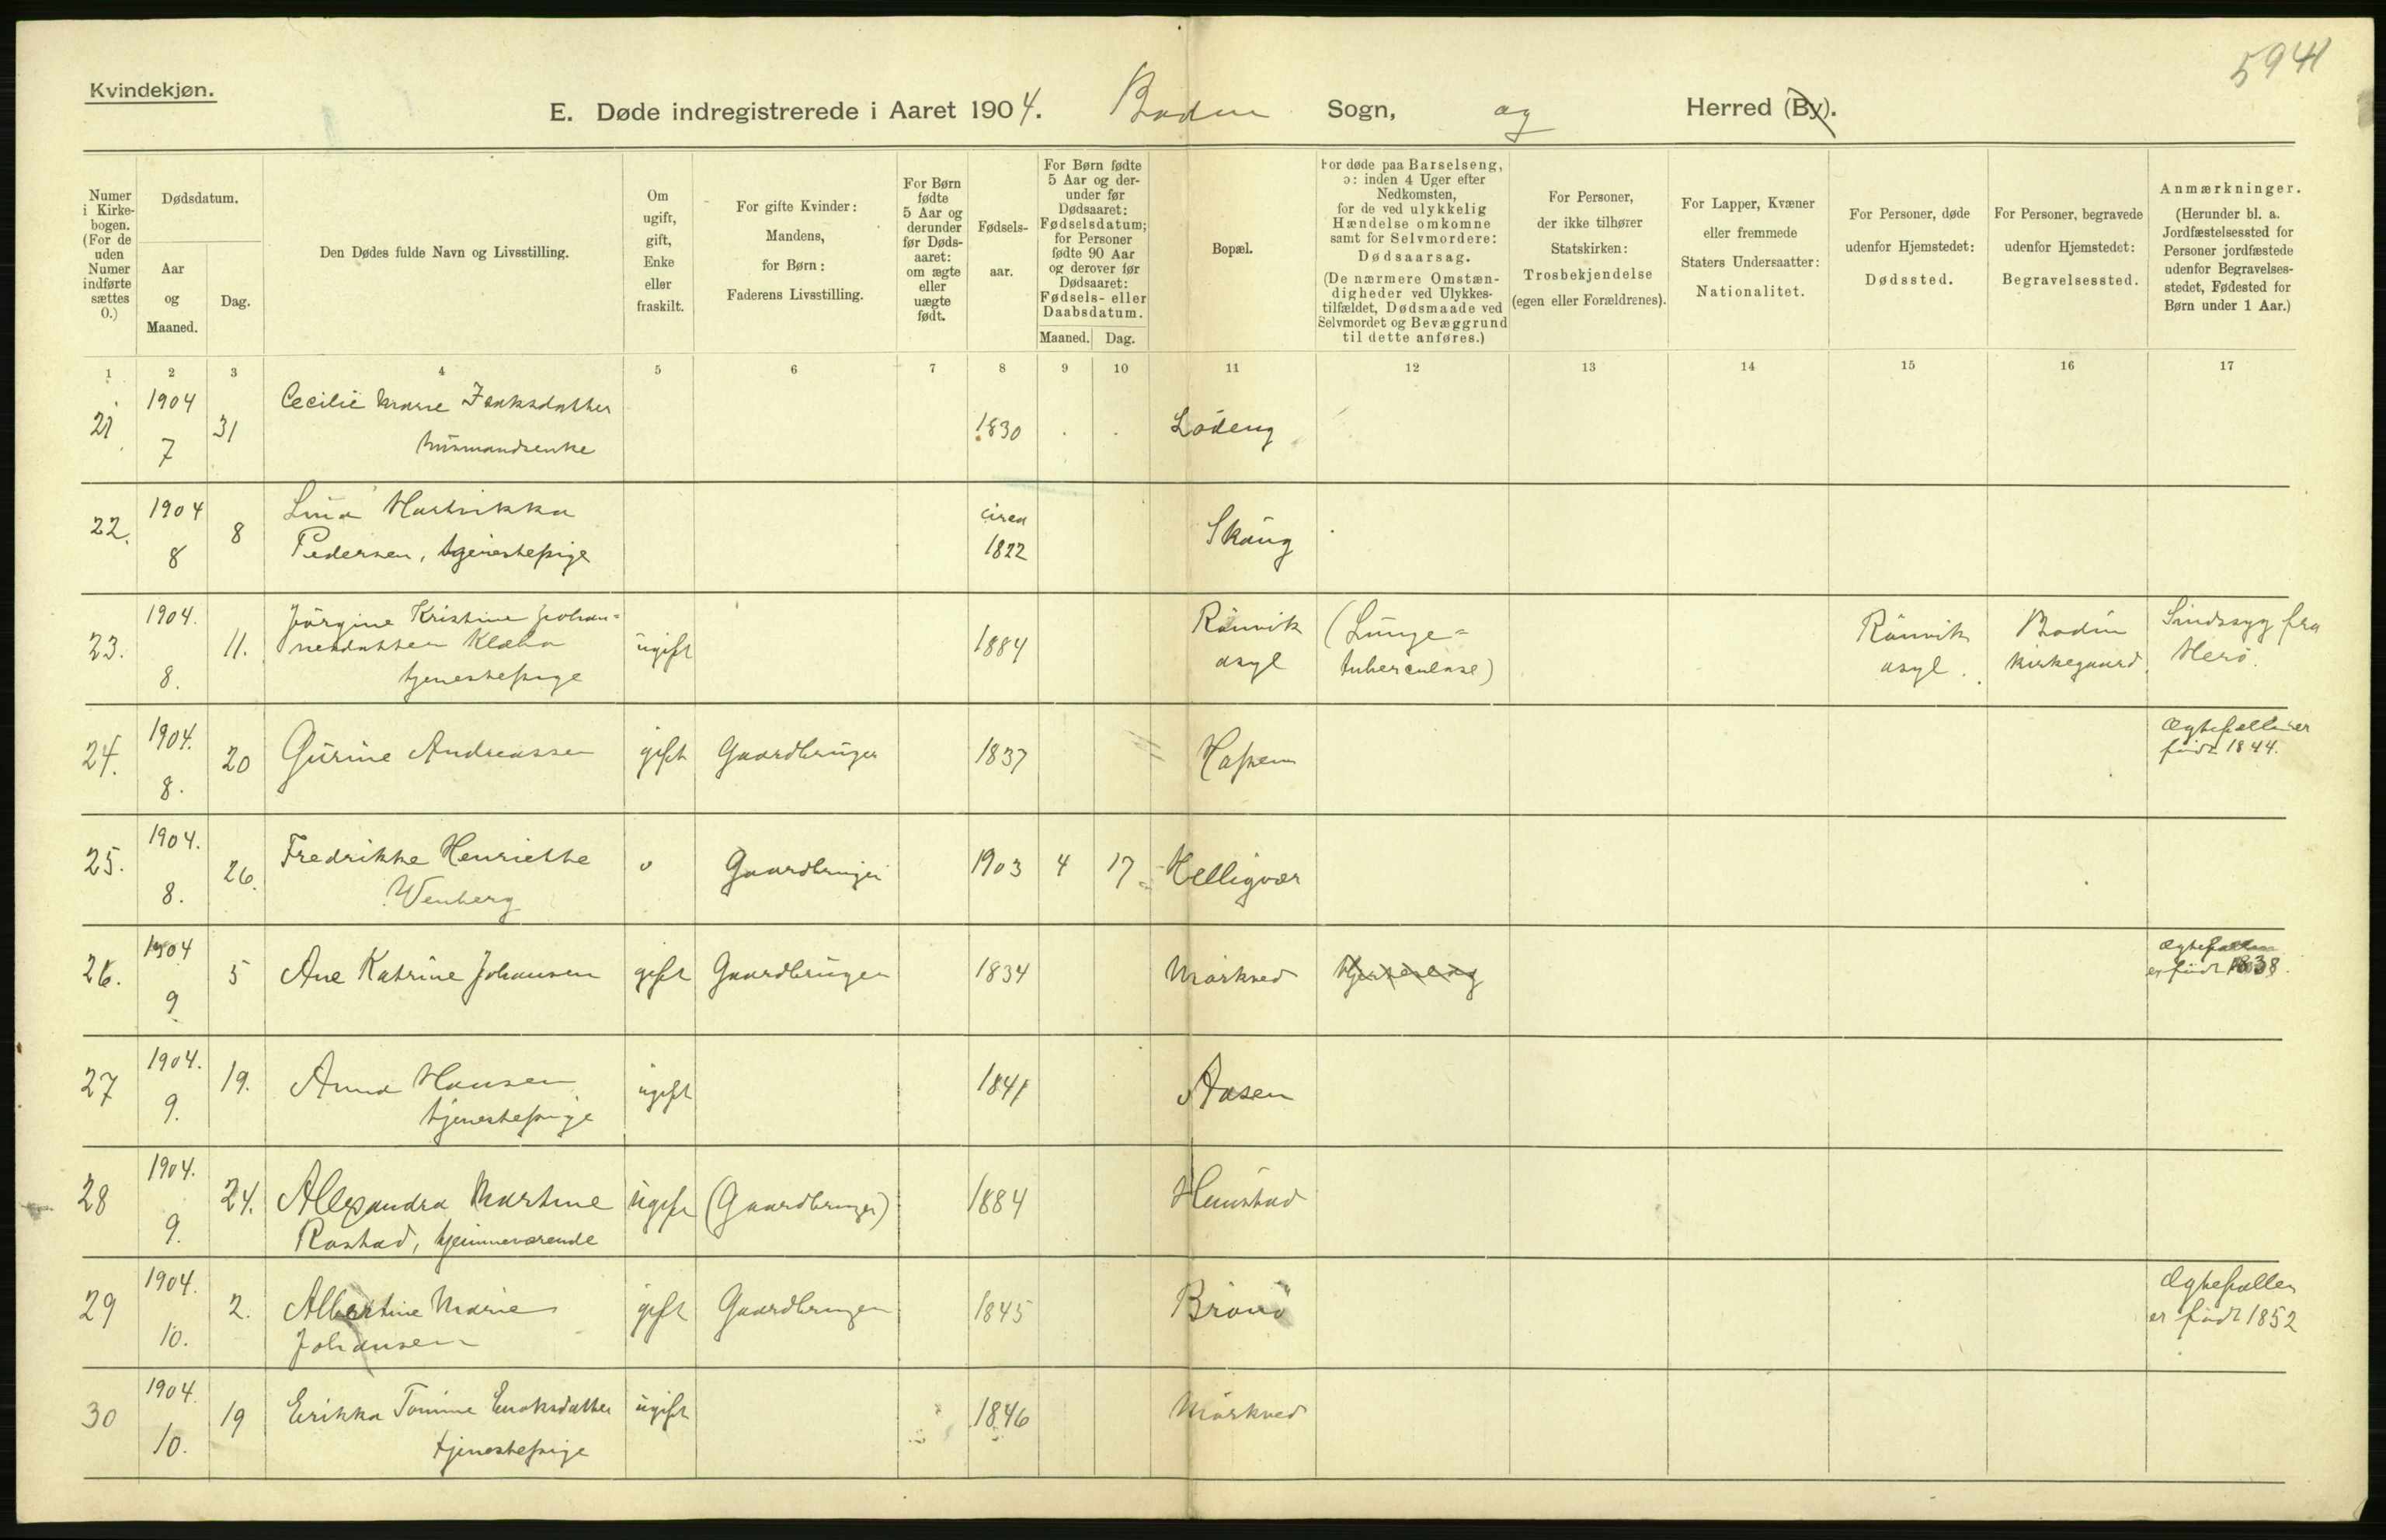 Kvindekjøn.
5941
E. Døde indregistrerede i Aaret 1904. Bodin Sogn, og Herred (By).
Numer
i Kirke-
bogen.
(For de
uden
Numer
indførte
sættes
0.)
Dødsdatum.
Aar
og
Maaned.
Dag.
Den Dødes fulde Navn og Livsstilling.
Om
ugift,
gift,
Enke
eller
fraskilt.
For gifte Kvinder:
Mandens,
for Børn:
Faderens Livsstilling.
For Børn
fødte
5 Aar og
derunder
før Døds-
aaret:
om ægte
eller
uægte
født.
Fødsels-
aar.
For Børn fødte
5 Aar og der-
under før
Dødsaaret:
Fødselsdatum;
for Personer
fødte 90 Aar
og derover før
Dødsaaret:
Fødsels- eller
Daabsdatum.
Maaned. Dag.
Bopæl.
For døde paa Barselseng,
ɔ: inden 4 Uger efter
Nedkomsten,
for de ved ulykkelig
Hændelse omkomne
samt for Selvmordere:
Dødsaarsag.
(De nærmere Omstæn-
digheder ved Ulykkes-
tilfældet, Dødsmaade ved
Selvmordet og Bevæggrund
til dette anføres.)
For Personer,
der ikke tilhører
Statskirken:
Trosbekjendelse
(egen eller Forældrenes).
For Lapper, Kvæner
eller fremmede
Staters Undersaatter:
Nationalitet.
For Personer, døde
udenfor Hjemstedet:
Dødssted.
For Personer, begravede
udenfor Hjemstedet:
Begravelsessted.
Anmærkninger.
(Herunder bl. a.
Jordfæstelsessted for
Personer jordfæstede
udenfor Begravelses-
stedet, Fødested for
Børn under 1 Aar.)
1 2 3 4 5 6 7 8 9 10 11 12 13 14 15 16 17
21 1904 7 31 Cecilie Marie Isaksdatter
husmandsenke 1830 Løding
22. 1904 8 8 Hartvikka
Pedersen, tjenestepige circa
1822 Skaug
23. 1904. 8. 11. Jörgine Kristine Johan=
nesdatter Klæbo
tjenestepige ugift 1884 Rönvik
asyl (Lunge=
tuberculose) Rönvik
asyl. Bodin
kirkegaard. Sindssyg fra
Herö.
24. 1904. 8. 20 Gurine Andreassen gift Gaardbruger 1837 Ægtefællen er
født 1844.
25. 1904. 8. 26. Fredrikke Henriette
Wenberg Gaardbruger 1903 4 17 Helligvær
26. 1904 9 5 Ane Katrine Johansen gift Gaardbruger 1834 Mörkved Ægtefællen
er født 1838.
27 1904. 9. 19. Anna Hansen
tjenestepige ugift 1841 Aasen
28 1904. 9. 24. Alexandra Martine
Rastad, hjemmeværende ugift (Gaardbruger) 1884 Hunstad
29 1904. 10. 2. Albertine Marie
Johansen gift Gaardbruger 1845 Ægtefællen
er født 1852
30 1904. 10. 19 Erikka Tomine Enoksdatter
tjenestepige ugift 1846 Mörkved